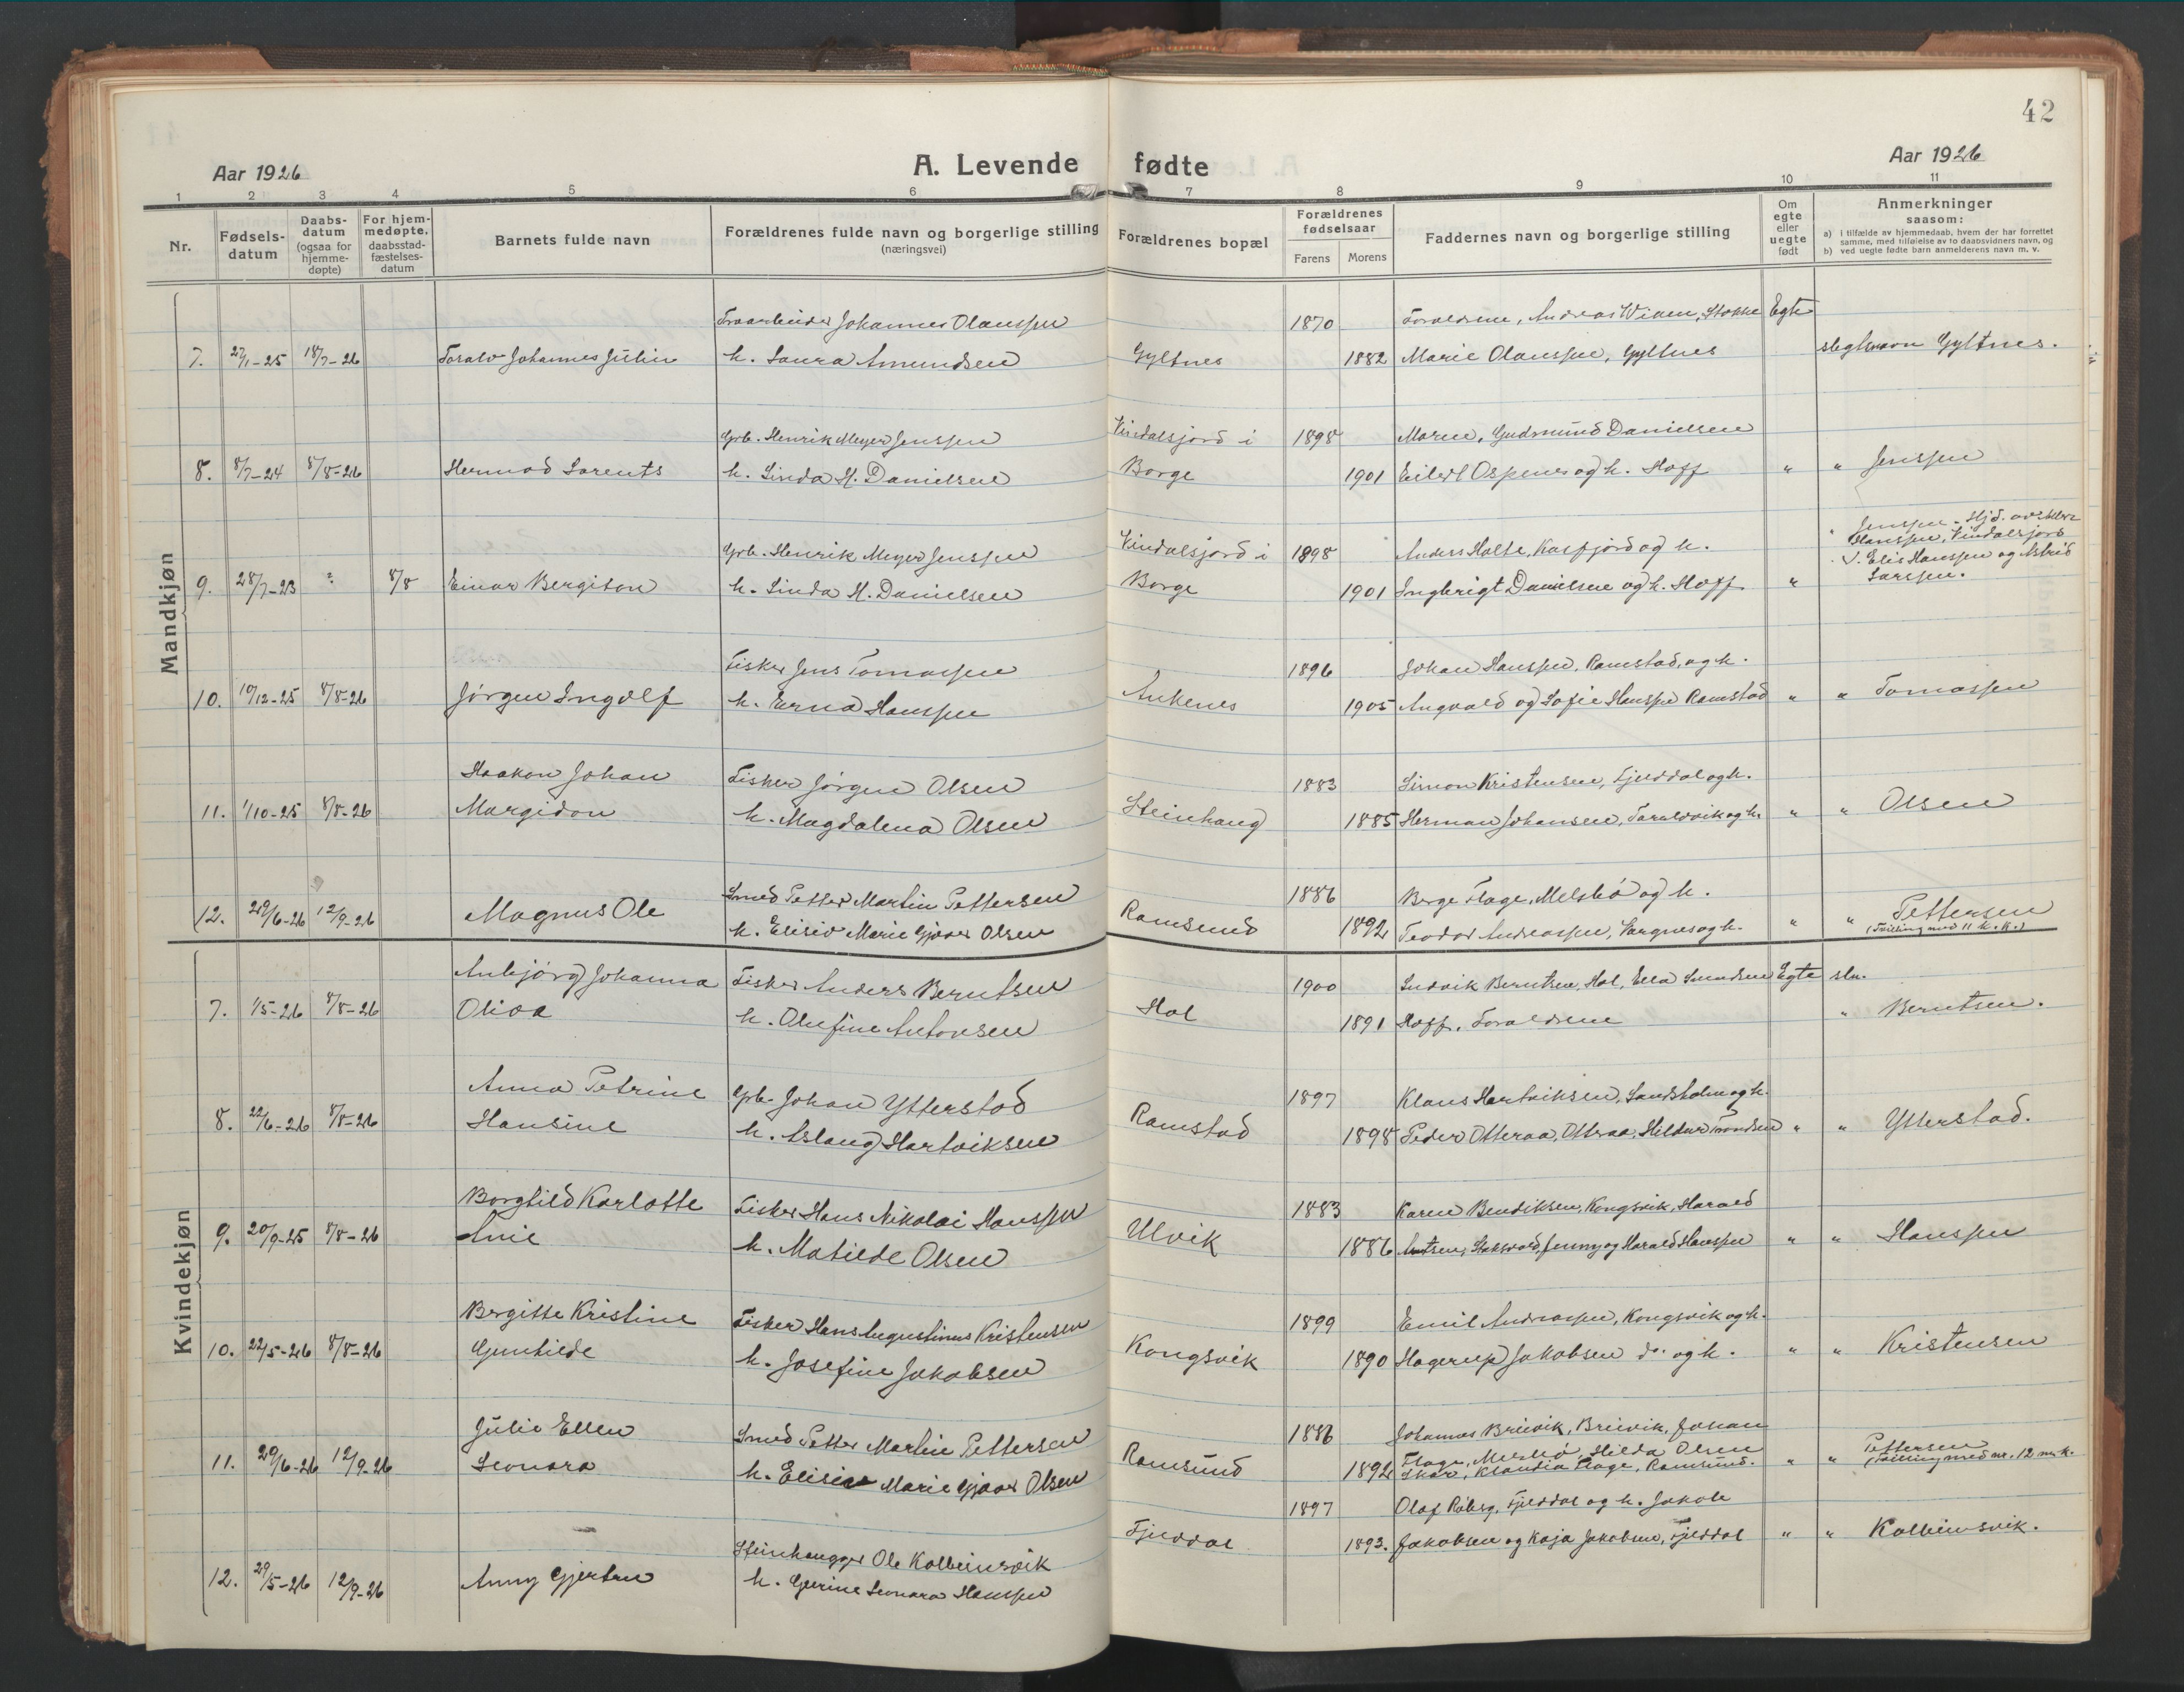 42
Aar 1926
A. Levende fødte
Aar 1926
1 2 3 4 5 6 7 8 9 10 11
Nr.
Fødsels-
datum
Daabs-
datum
(ogsaa for
hjemme-
døpte)
For hjem-
medøpte,
daabsstad-
fæstelses-
datum
Barnets fulde navn
Forældrenes fulde navn og borgerlige stilling
(næringsvei)
Forældrenes bopæl
Forældrenes
fødselsaar
Farens Morens
Faddernes navn og borgerlige stilling
Om
egte
eller
uegte
født
Anmerkninger
saasom:
a) i tilfælde av hjemmedaab, hvem der har forrettet
samme, med tilføielse av to daabsvidners navn, og
b) ved uegte fødte barn anmelderens navn m. v.
Mandkjøn
Johannes Olaussen 1870 Forældrene, Andreas Wiken, Stokke Egte
7. 27/1-25 18/7-26 Toralv Johannes Julin h. Laura Amundsen Gyltnes 1882 Marie Olaussen, Gyltnes slegtsnavn Gyltnes.
Grb. Henrik Meyer Jenssen Kindalsjord i 1898 Moren, Gudmund Danielsen
8. 8/7-24 8/8-26 Hermod Lorents h. Linda H. Danielsen Borge 1901 Eilert Ospenes og h. Hoff " " Jenssen
Grb. Henrik Meyer Jenssen Kindalsjord i 1898 Anders Holte, Kasfjord og h.
" Jenssen - Hjd. av
Hanssen, Kindalsjord
V. Elis Hanssen og Astrid
Larssen.
9. 28/7-23 ? 8/8 Einar Bergiton h. Linda H. Danielsen Borge 1901 Ingbrigt Danielsen og h. Hoff "
Fisker Jens Tomassen 1896 Johan Hanssen, Ramstad, og h.
10. 10/12-25 8/8-26 Jørgen Ingolf h. Erna Hanssen Ankenes 1905 Angvald og Sofie Hanssen Ramstad " " Tomassen
Haakon Johan Fisker Jørgen Olsen 1883 Simon Kristensen, Fjelddal og h.
11. 1/10-25 8/8-26 Margidon h. Magdalena Olsen Steinhaug 1885 Herman Johansen, Taraldsvik og h. " " Olsen
Smed Petter Martin Pettersen 1886 Berge Flage, Melsbø og h.
12. 29/6-26 12/9-26 Magnus Ole h. Elisiv Marie Gjøver Olsen Ramsund 1892 Teodor Andreassen, Vargnes og h. " " Pettersen
(Tvilling med 11 k.k.)
Kvindekjøn
Anbjørg Johanna Fisker Anders Berntsen 1900 Ludvik Berntsen, Hol, Ella Amundsen Egte sln.
7. 1/5-26 8/8-26 Oliva h. Olufine Antonsen Hol 1891 Hoff. Forældrene " Berntsen.
Anna Petrine Grb. Johan Ytterstad 1897 Klaus Hartviksen, Sandstholm og h.
8. 22/6-26 8/8-26 Hansine h. Aslaug Hartviksen Ramstad 1898 Peder Otteraa, Otteraa, Hildur Trondsen " " Ytterstad.
Borghild Karlotte Fisker Hans Nikolai Hanssen 1883 Karen Bendiksen, Kongsvik, Harald
9. 20/9-25 8/8-26 Anie h. Matilde Olsen Ulvik 1886 Jenny og Harald Hanssen " " Hanssen
Bergitte Kristine Fisker Hans Augustinus Kristensen 1899 Emil Andreassen, Kongsvik og h.
10. 22/5-26 8/8-26 Gunhilde h. Josefine Jakobsen Kongsvik 1890 Hagerup Jakobsen do. og h. " " Kristensen
Julie Ellen Smed Petter Martin Pettersen 1886 Johannes Breivik, Breivik, Johan
11. 29/6-26 12/9-26 Leonora h. Elisiv Marie Gjøver Olsen Ramsund 1892 Flage, Melsbø, Hilda Olsen
Skar, Klaudia Flage, Ramsund. " " Pettersen
(Tvilling med nr. 12 m.k.
1897 Olaf Råberg, Fjelddal og h. Jakob
Fjelddal 1893. Jakobsen og Kaja Jakobsen, Fjelddal " " Kolbeinsvik.
Steinhugger Ole Kolbeinsvik
12. 29/5-26 12/9-26 Anny Gjertrud h. Gjerine Leonora Hanssen